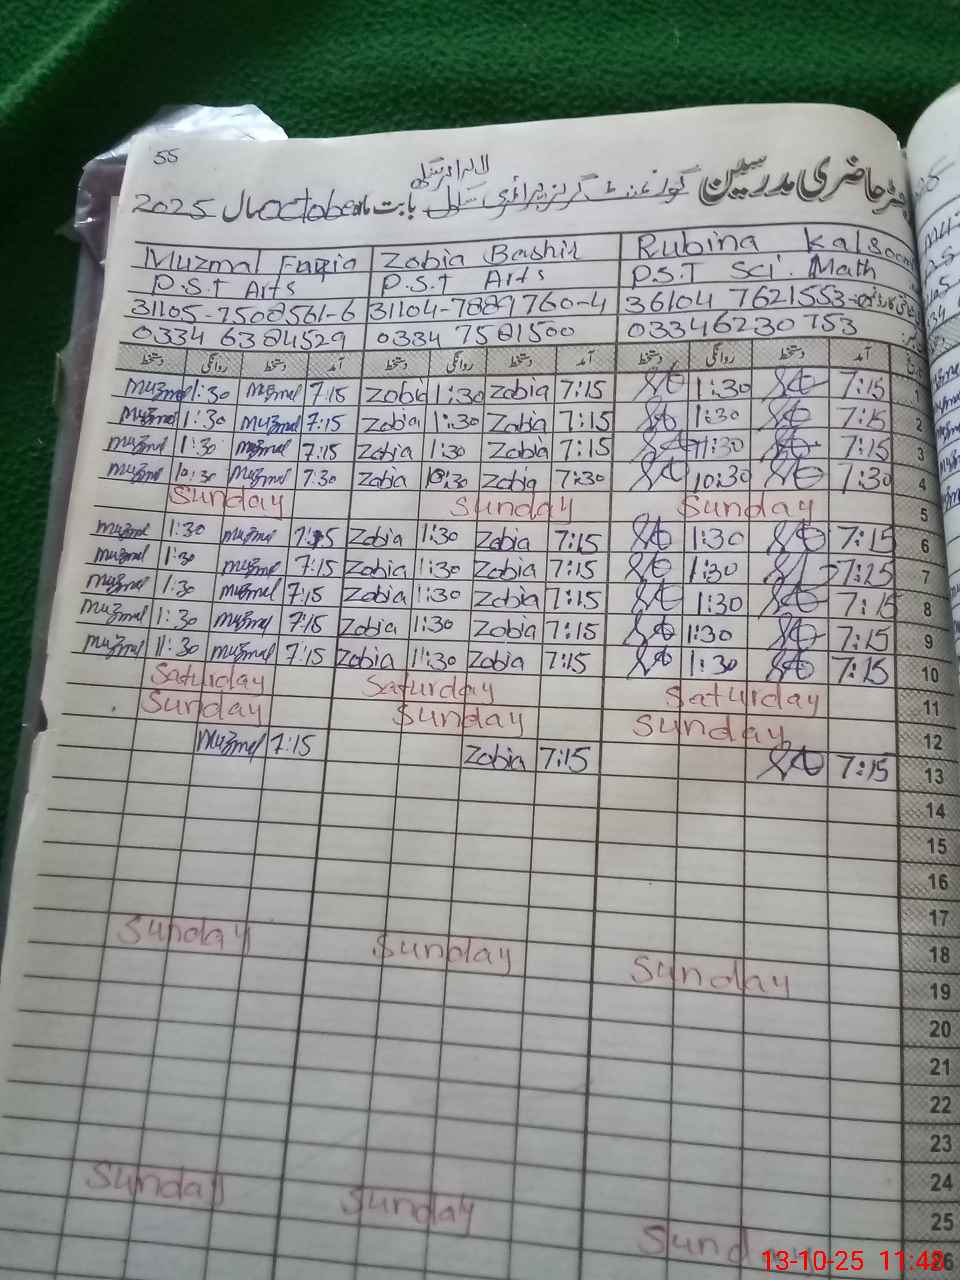 55
رجسٹر حاضری مدرسین گورنمنٹ گرلز پرائمری سکول بابت ماہ October سال 2025
Muzmal Fazia Zobia Bashir Rubina Kalsoom
P.S.T Arts P.S.T Arts P.S.T Sci. Math
31105-7508561-6 31104-7889760-4 36104 7621553
0334 6384529 0334 7581500 03346230753
دستخط روانگی دستخط آمد دستخط روانگی دستخط آمد دستخط روانگی دستخط آمد
muzmel 1:30 muzmel 7:15 Zobia 1:30 Zobia 7:15 1:30 7:15 1
muzmel 1:30 muzmel 7:15 Zobia 1:30 Zobia 7:15 1:30 7:15 2
muzmel 1:30 muzmel 7:15 Zobia 1:30 Zobia 7:15 11:30 7:15 3
muzmel 10:30 muzmel 7:30 Zobia 10:30 Zobia 7:30 10:30 7:30 4
Sunday Sunday Sunday 5
muzmel 1:30 muzmel 7:15 Zobia 1:30 Zobia 7:15 1:30 7:15 6
muzmel 1:30 muzmel 7:15 Zobia 1:30 Zobia 7:15 1:30 7:15 7
muzmel 1:30 muzmel 7:15 Zobia 1:30 Zobia 7:15 1:30 7:15 8
muzmel 1:30 muzmel 7:15 Zobia 1:30 Zobia 7:15 1:30 7:15 9
muzmel 11:30 muzmel 7:15 Zobia 11:30 Zobia 7:15 1:30 7:15 10
Saturday Saturday Saturday 11
Sunday Sunday Sunday 12
muzmel 7:15 Zobia 7:15 7:15 13
14
15
16
17
Sunday Sunday 18
Sunday 19
20
21
22
23
24
Sunday Sunday 25
Sund 26
13-10-25 11:48